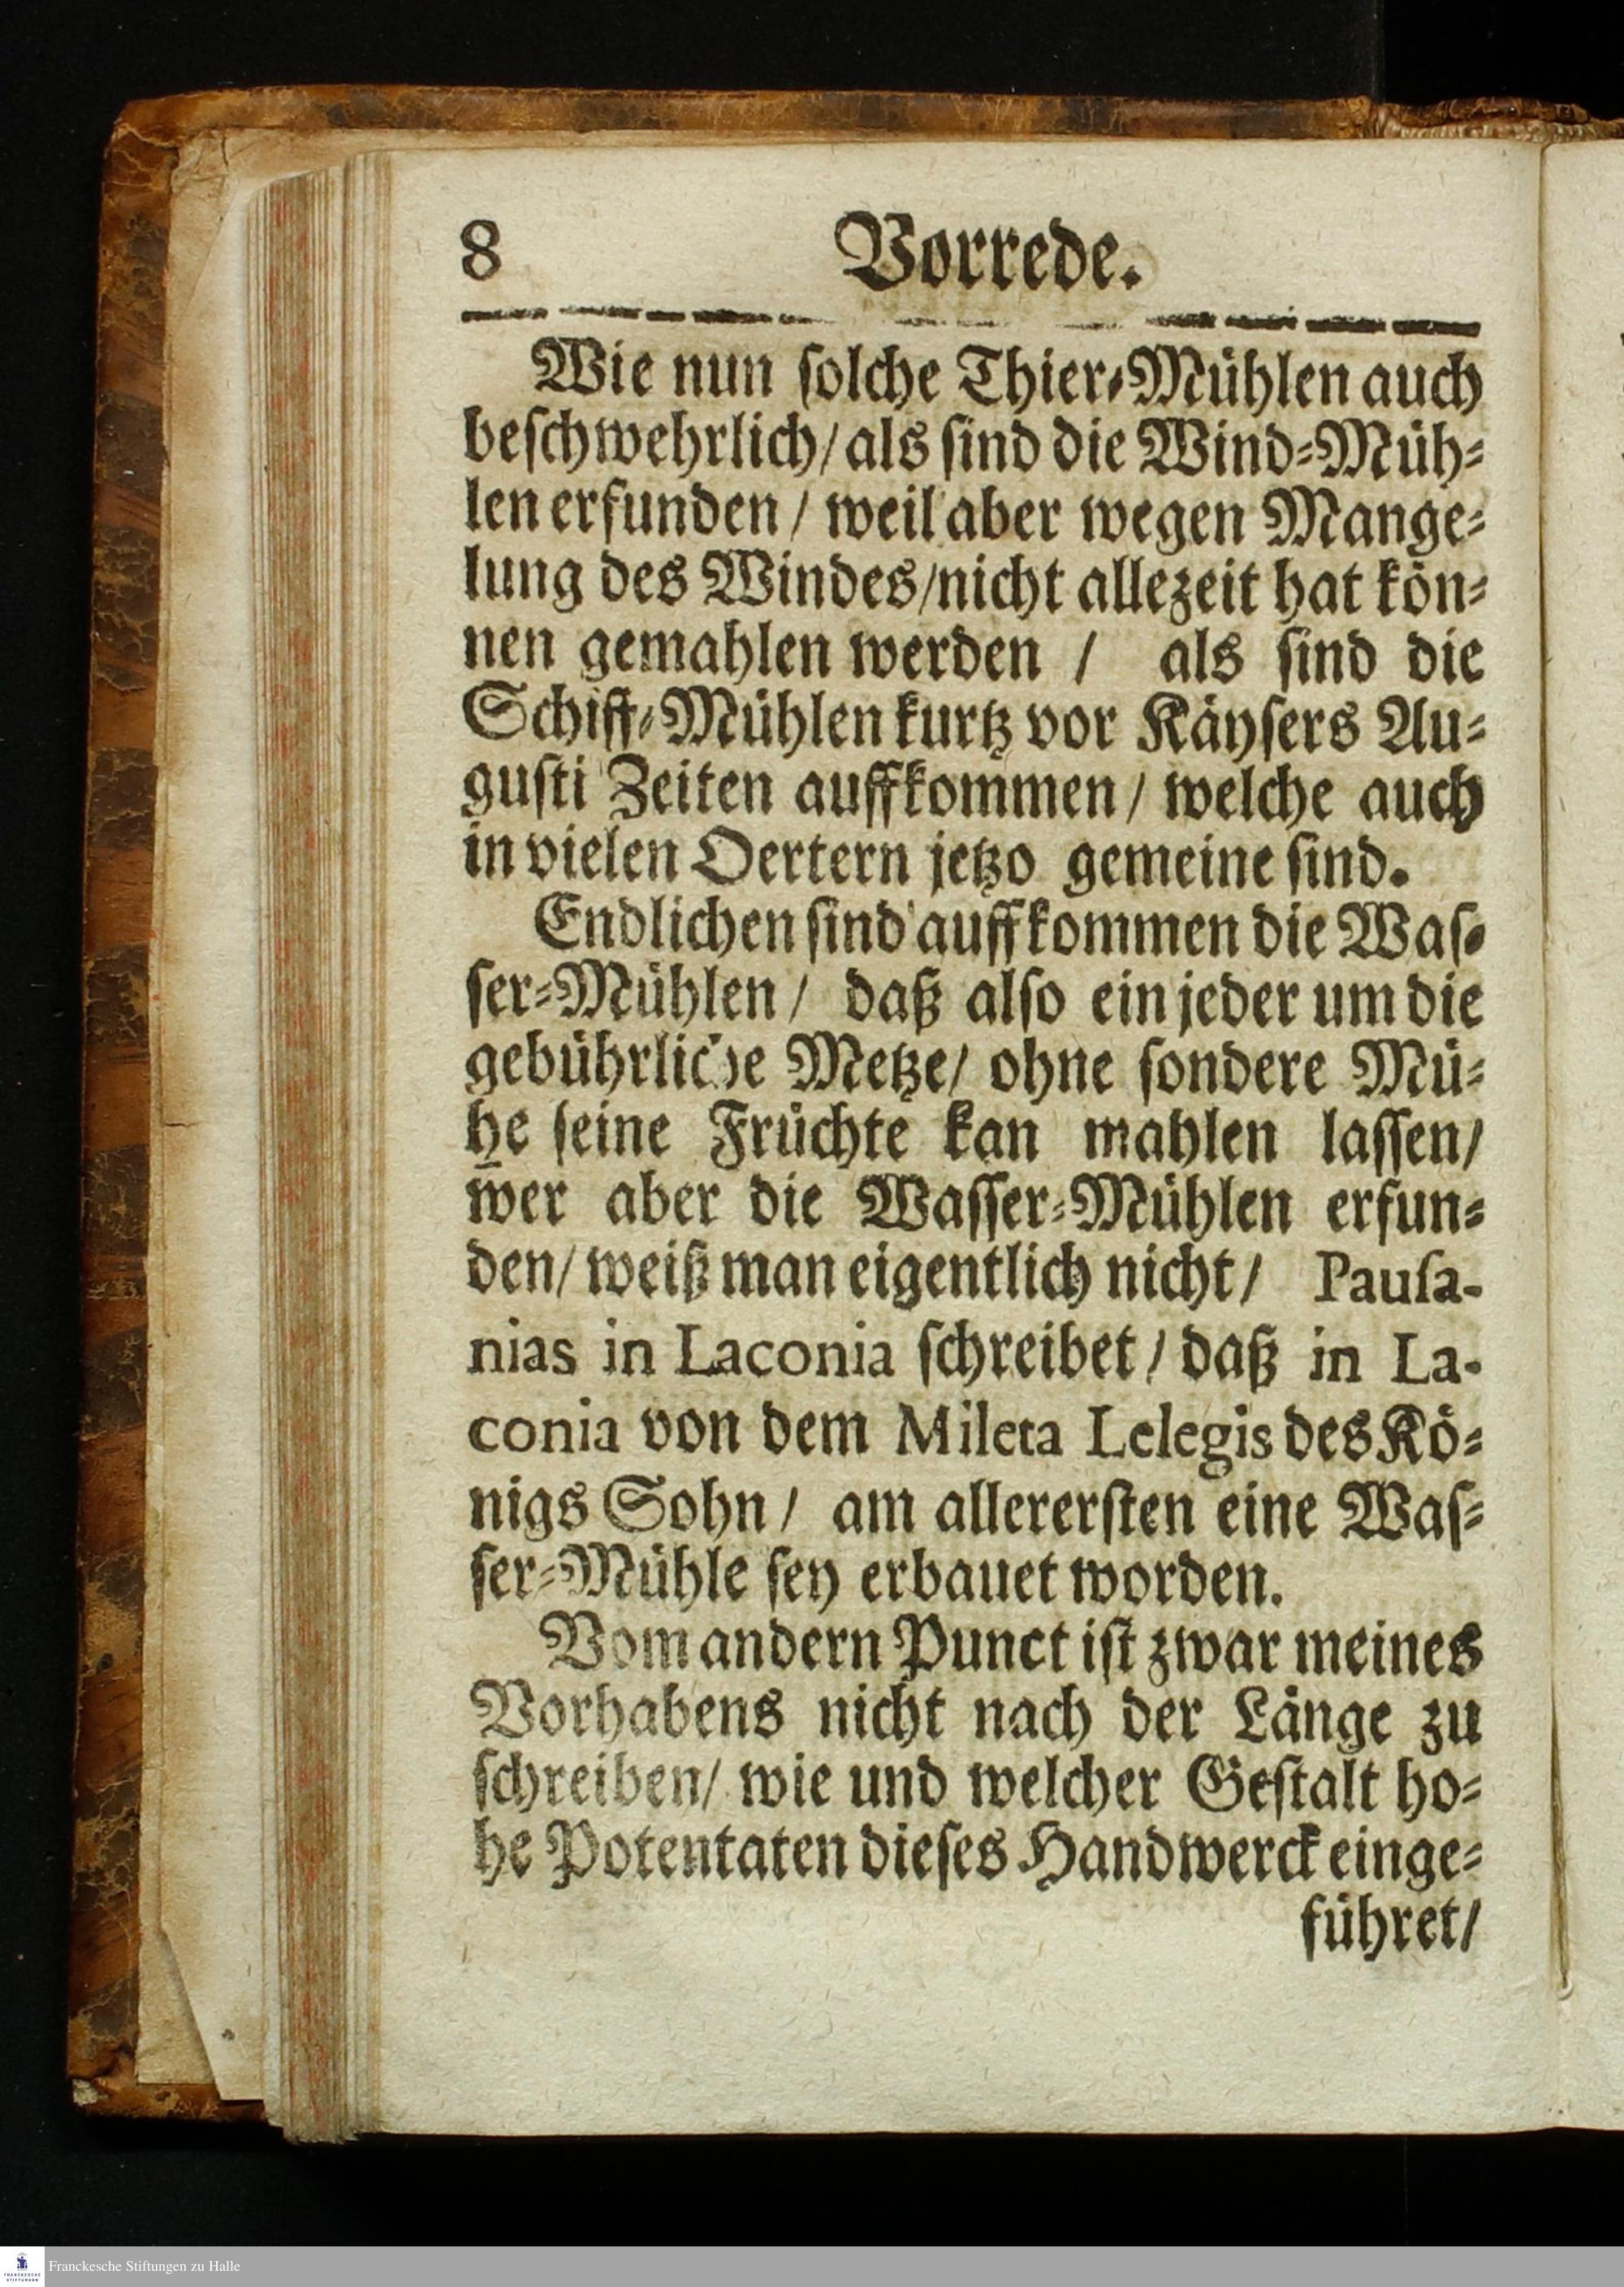 8 Vorrede.
Wie nun ſolche Thier-Mühlen auch
beſchwehrlich/ als ſind die Wind-Müh-
len erfunden / weil aber wegen Mange-
lung des Windes/nicht allezeit hat kön-
nen gemahlen werden / als ſind die
Schiff-Mühlen kurtz vor Käyſers Au-
guſti Zeiten auffkommen / welche auch
in vielen Oertern jetzo gemeine ſind.
Endlichen ſind auffkommen die Waſ-
ſer-Mühlen / daß alſo ein jeder um die
gebührliche Metze/ ohne ſondere Mü-
he ſeine Früchte kan mahlen laſſen/
wer aber die Waſſer-Mühlen erfun-
den/ weiß man eigentlich nicht / Pauſa-
nias in Laconia ſchreibet / daß in La-
conia von dem Mileta Lelegis des Kö-
nigs Sohn / am allererſten eine Waſ-
ſer-Mühle ſey erbauet worden.
Vom andern Punct iſt zwar meines
Vorhabens nicht nach der Länge zu
ſchreiben/ wie und welcher Geſtalt ho-
he Potentaten dieſes Handwerck einge-
führet/
Franckesche Stiftungen zu Halle
FRANCKESCHE
STIFTUNGEN